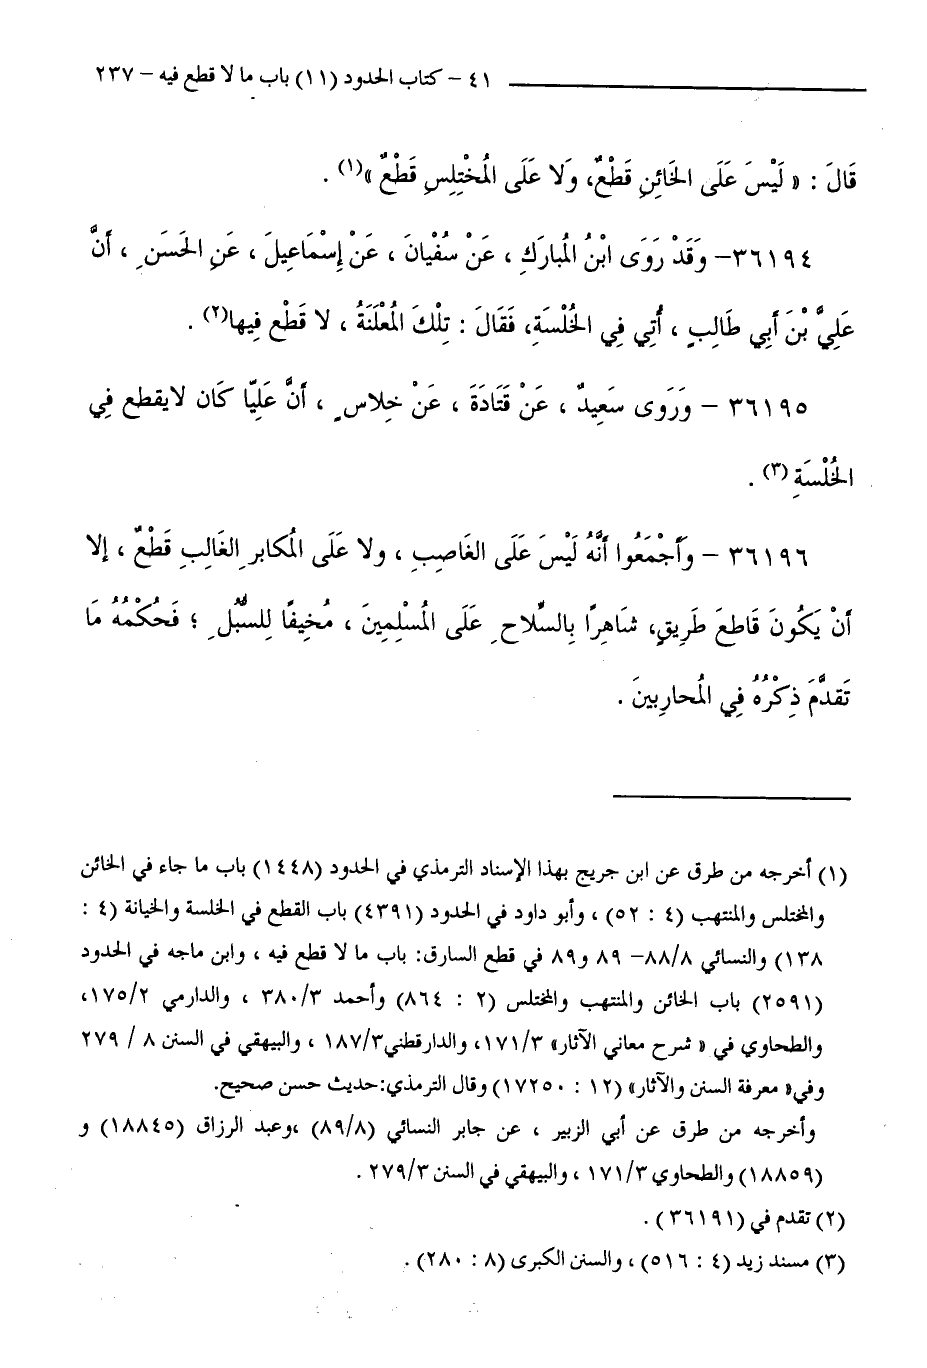 ٤١ – كتاب الحدود (١١) باب ما لا قطع فيه – ٢٣٧
قَالَ : « لَيْسَ عَلَى الخَائِنِ قَطْعٌ، وَلا عَلَى المُخْتِلِسِ قَطْعٌ »(١) .
٣٦١٩٤– وَقَدْ رَوَى ابْنُ المُبارَكِ ، عَنْ سُفْيانَ ، عَنْ إِسْمَاعِيلَ ، عَنِ الحَسَنِ ، أَنَّ
عَلِيَّ بْنَ أَبِي طَالِبٍ ، أُتِي فِي الخُلْسَةِ، فَقَالَ : تِلْكَ المُعْلَنَةُ ، لا قَطْع فِيها(٢) .
٣٦١٩٥ – وَرَوَى سَعِيدٌ ، عَنْ قَتَادَةَ ، عَنْ خِلاسٍ ، أَنَّ عَلِيّا كَان لا يقطع فِي
الخُلْسَةِ (٣) .
٣٦١٩٦ – وَأَجْمَعُوا أَنَّهُ لَيْسَ عَلَى الغَاصِبِ ، ولا عَلَى المُكابرِ الغَالِبِ قَطْعٌ ، إلا
أَنْ يَكُونَ قَاطِعَ طَرِيقٍ، شَاهِرًا بِالسِّلاحِ عَلَى المُسْلِمِينَ ، مُخِيفًا لِلسُّبُلِ ؛ فَحُكْمُهُ مَا
تَقدَّمَ ذِكْرُهُ فِي المُحارِبينَ .
(١) أخرجه من طرق عن ابن جريج بهذا الإسناد الترمذي في الحدود (١٤٤٨) باب ما جاء في الخائن
والمختلس والمنتهب (٤ : ٥٢) ، وأبو داود في الحدود (٤٣٩١) باب القطع في الخلسة والخيانة (٤ :
١٣٨) والنسائي ٨٨/٨– ٨٩ و٨٩ في قطع السارق: باب ما لا قطع فيه ، وابن ماجه في الحدود
(٢٥٩١) باب الخائن والمنتهب والمختلس (٢ : ٨٦٤) وأحمد ٣٨٠/٣ ، والدارمي ١٧٥/٢،
والطحاوي في « شرح معاني الآثار» ١٧١/٣، والدارقطني١٨٧/٣ ، والبيهقي في السنن ٨ / ٢٧٩
وفي« معرفة السنن والآثار» (١٢ : ١٧٢٥٠) وقال الترمذي:حديث حسن صحيح.
وأخرجه من طرق عن أبي الزبير ، عن جابر النسائي (٨٩/٨) ،وعبد الرزاق (١٨٨٤٥) و
(١٨٨٥٩) والطحاوي ١٧١/٣ ، والبيهقي في السنن ٢٧٩/٣ .
(٢) تقدم في (٣٦١٩١) .
(٣) مسند زيد (٤ : ٥١٦) ، والسنن الكبرى (٨ : ٢٨٠) .